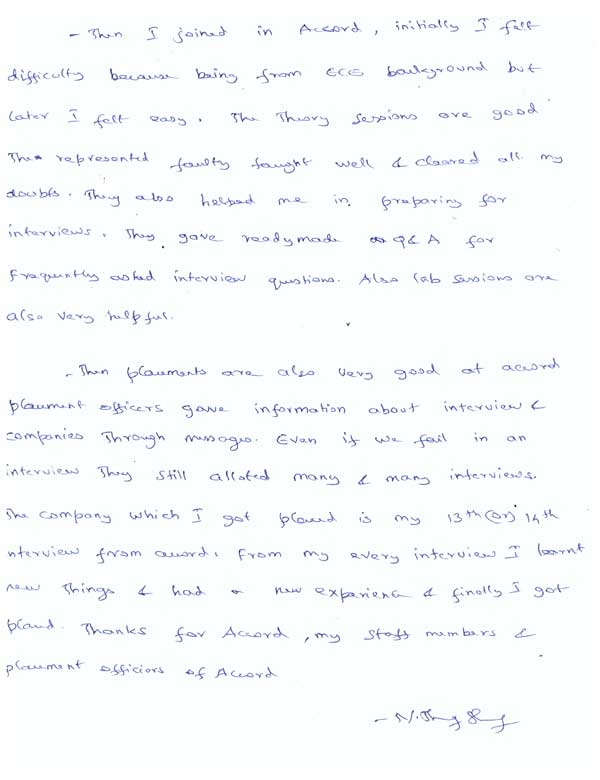 - Then I joined in Accord, initially I felt
difficulty because being from ECE background but
later I felt easy. The Theory sessions are good
The represented faulty taught well & cleared all my
doubts. They also helped me in preparing for
interviews. They gave readymade Q & A for
frequntly asked interview qustions. Also lab sessions are
also very helpful.
- Then placements are also very good at accord
placement officers gave information about interview &
companies Through messages. Even if we fail in an
interview They still alloted many & many interviews.
The company which I got placed is my 13th (or) 14th
nterview from accord. From my every interview I learnt
new Things & had a new experience & finally I got
placed. Thanks for Accord, my staff members &
placement officiors of Accord